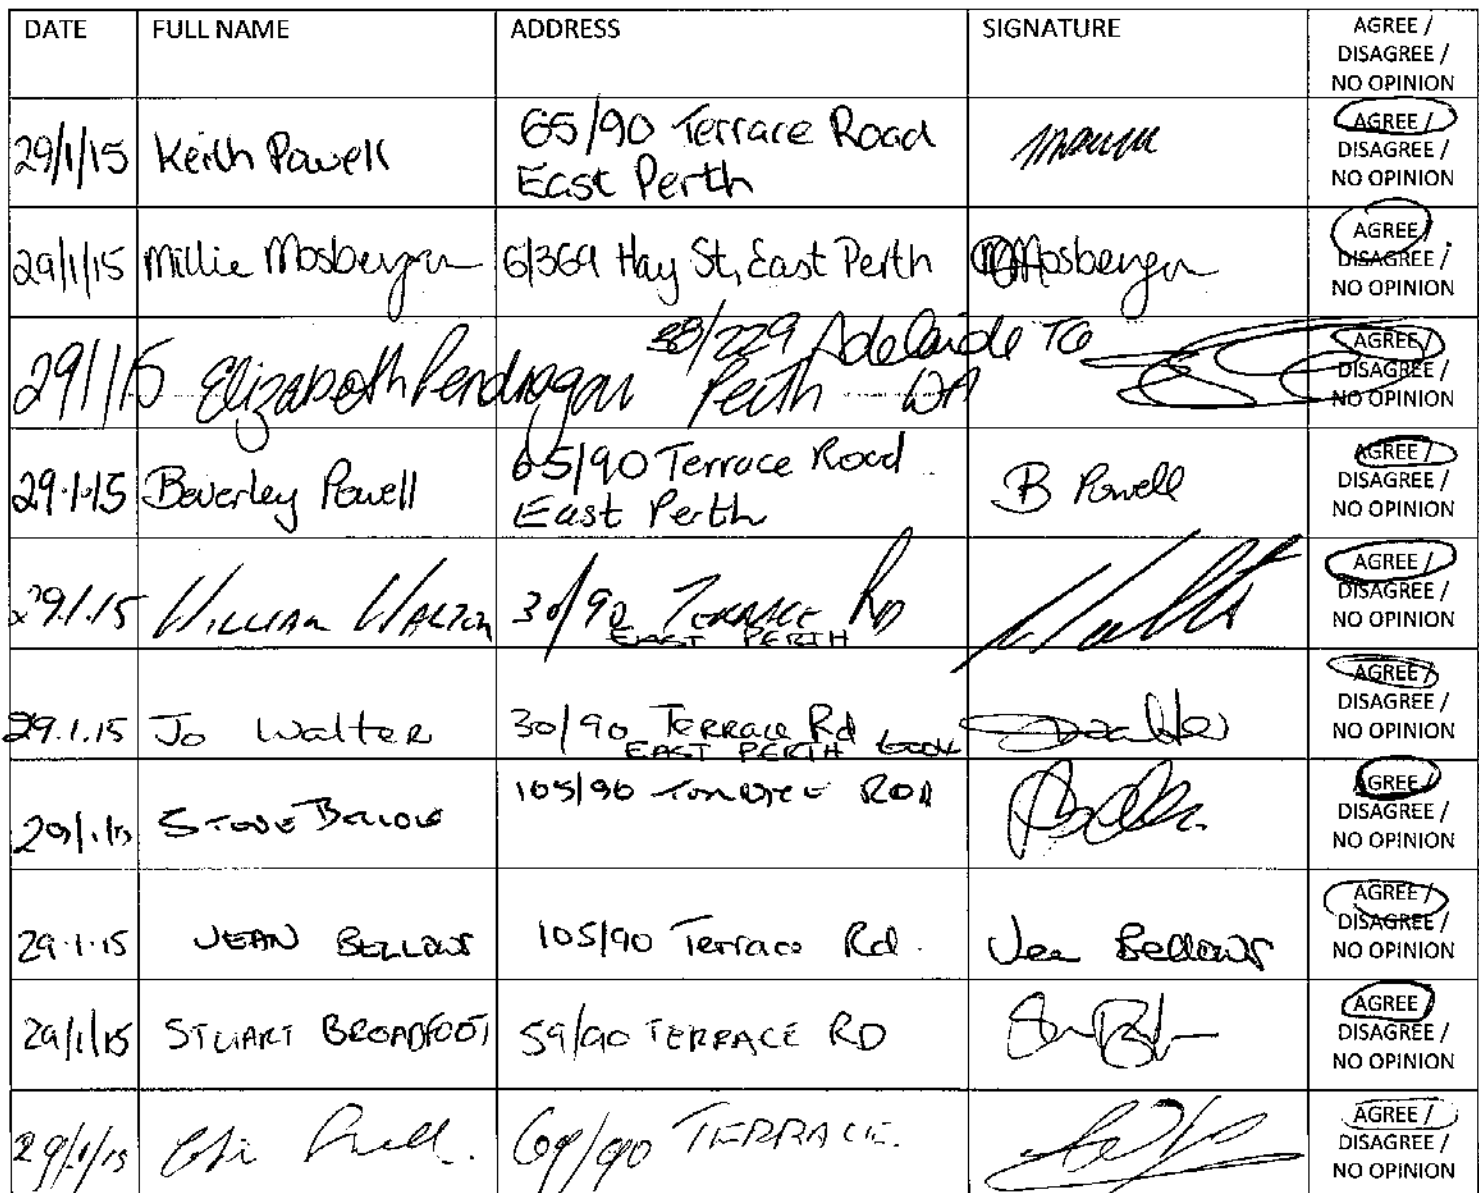 DATE FULL NAME ADDRESS SIGNATURE AGREE /
DISAGREE /
NO OPINION
29/1/15 Keith Powell 65/90 Terrace Road
East Perth
AGREE /
DISAGREE /
NO OPINION
29/1/15 Millie Mosbergen 6/369 Hay St, East Perth MMosbergen
AGREE /
DISAGREE /
NO OPINION
29/1/15 Elizabeth Pendragon 38/229 Adelaide Tce
Perth WA
AGREE /
DISAGREE /
NO OPINION
29.1.15 Beverley Powell 65/90 Terrace Road
East Perth
B Powell
AGREE /
DISAGREE /
NO OPINION
29.1.15 WILLIAM 30/90 TERRACE RD
EAST PERTH
AGREE /
DISAGREE /
NO OPINION
29.1.15 Jo Walter 30/90 TERRACE Rd
EAST PERTH 6004
AGREE /
DISAGREE /
NO OPINION
29/1/15 STEVE 105/90
AGREE /
DISAGREE /
NO OPINION
29.1.15 JEAN BELLOWS 105/90 Terrace Rd. Jean Bellows
AGREE /
DISAGREE /
NO OPINION
29/1/15 STUART BROADFOOT 59/90 TERRACE RD
AGREE /
DISAGREE /
NO OPINION
29/1/15 69/90 TERRACE.
AGREE /
DISAGREE /
NO OPINION